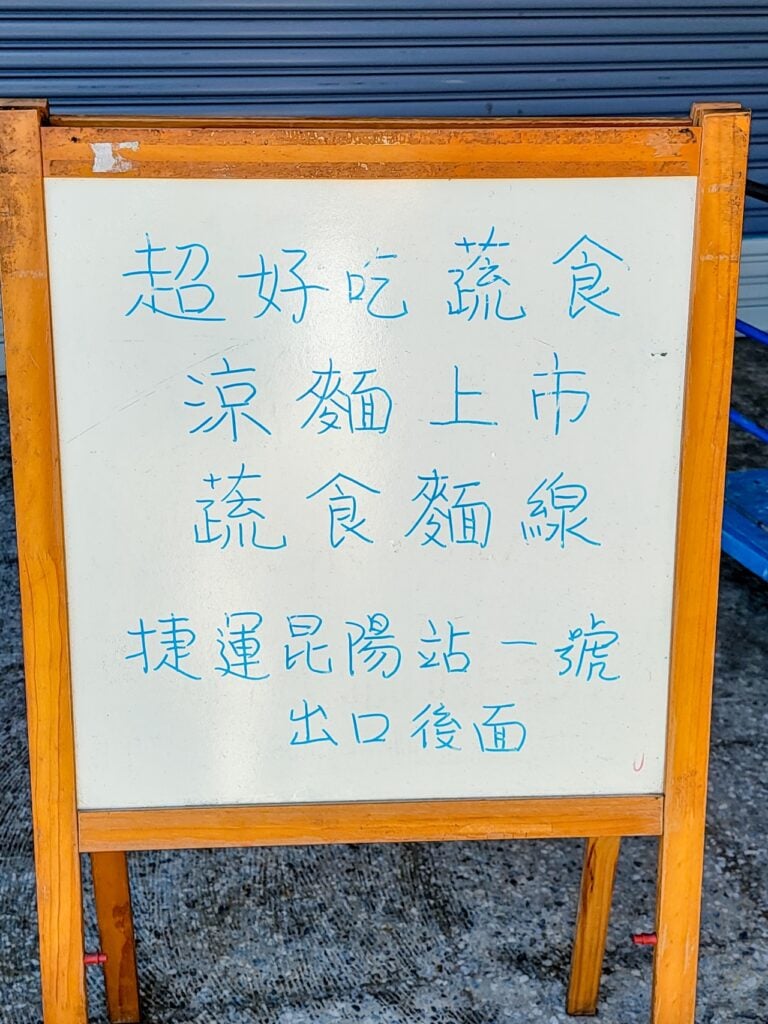 超好吃蔬食
涼麵上市
蔬食麵線
捷運昆陽站一號
出口後面